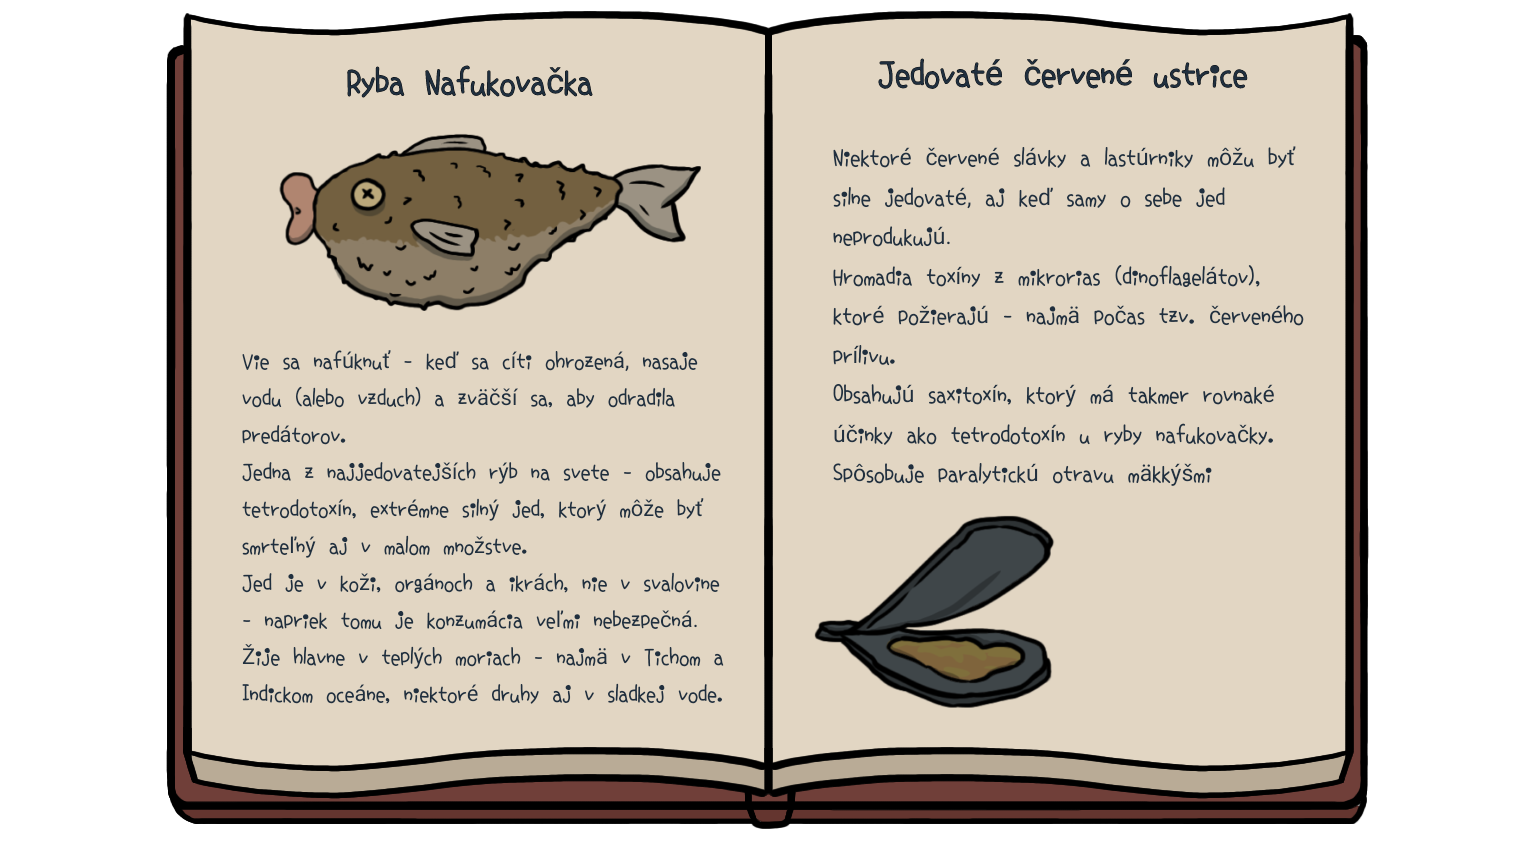 Ryba Nafukovačka
Vie sa nafúknuť - keď sa cíti ohrozená, nasaje
vodu (alebo vzduch) a zväčší sa, aby odradila
predátorov.
Jedna z najjedovatejších rýb na svete - obsahuje
tetrodotoxín, extrémne silný jed, ktorý môže byť
smrteľný aj v malom množstve.
Jed je v koži, orgánoch a ikrách, nie v svalovine
- napriek tomu je konzumácia veľmi nebezpečná.
Žije hlavne v teplých moriach - najmä v Tichom a
Indickom oceáne, niektoré druhy aj v sladkej vode.
Jedovaté červené ustrice
Niektoré červené slávky a lastúrniky môžu byť
silne jedovaté, aj keď samy o sebe jed
neprodukujú.
Hromadia toxíny z mikrorias (dinoflagelátov),
ktoré požierajú - najmä počas tzv. červeného
prílivu.
Obsahujú saxitoxín, ktorý má takmer rovnaké
účinky ako tetrodotoxín u ryby nafukovačky.
Spôsobuje paralytickú otravu mäkkýšmi